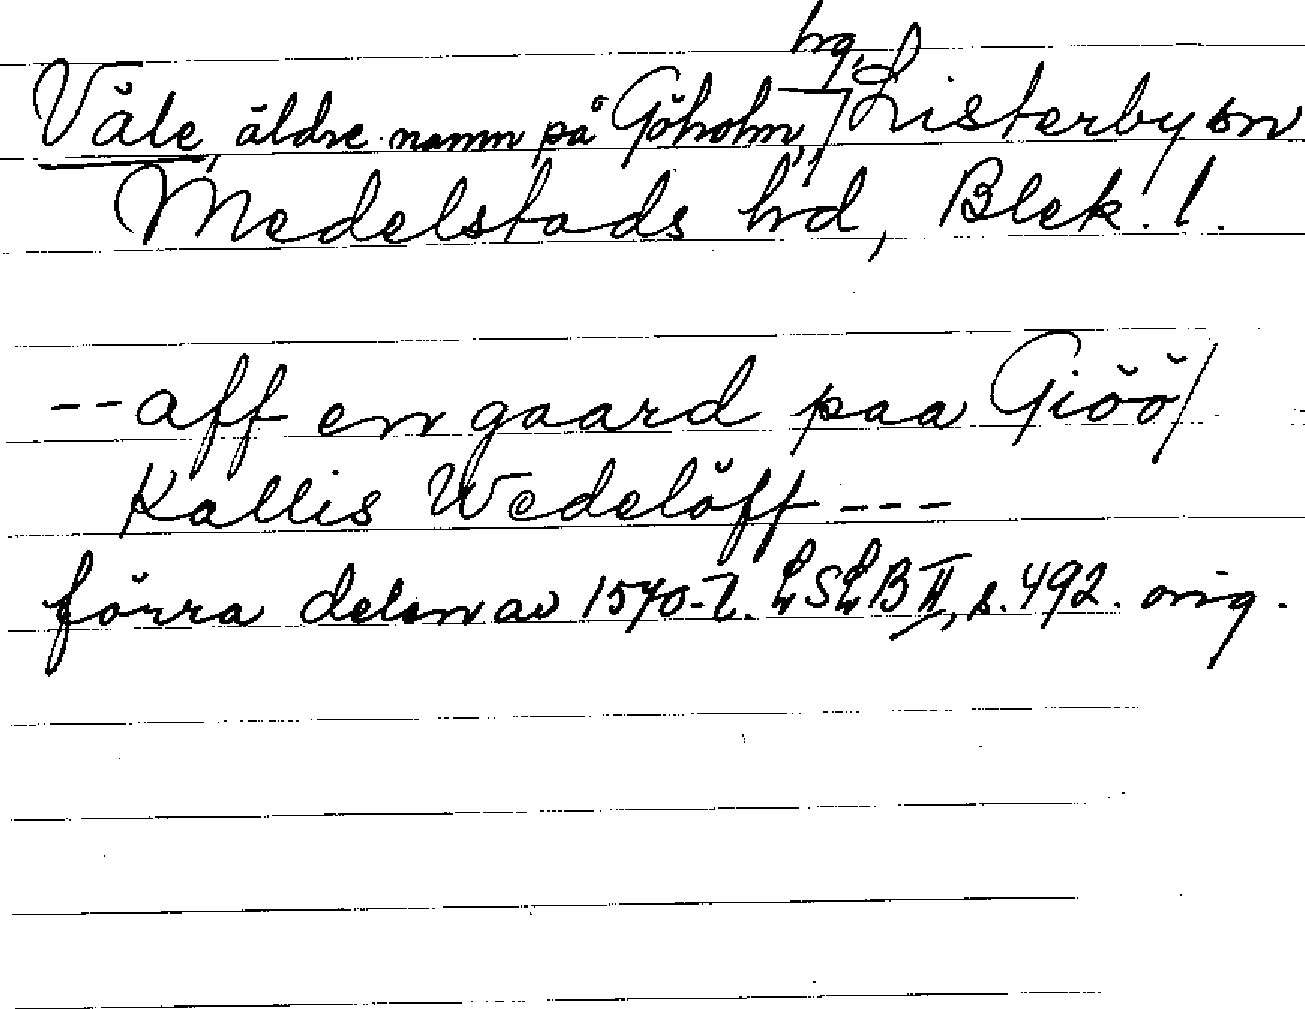 Våle, äldre namn på Göholm, hrg, Listerby sn
Medelstads hd, Blek. l.
-- aff en gaard paa Giöö/
Kallis Wedelöff ---
förra delen av 1570-t. LSLB II, s. 492. orig.